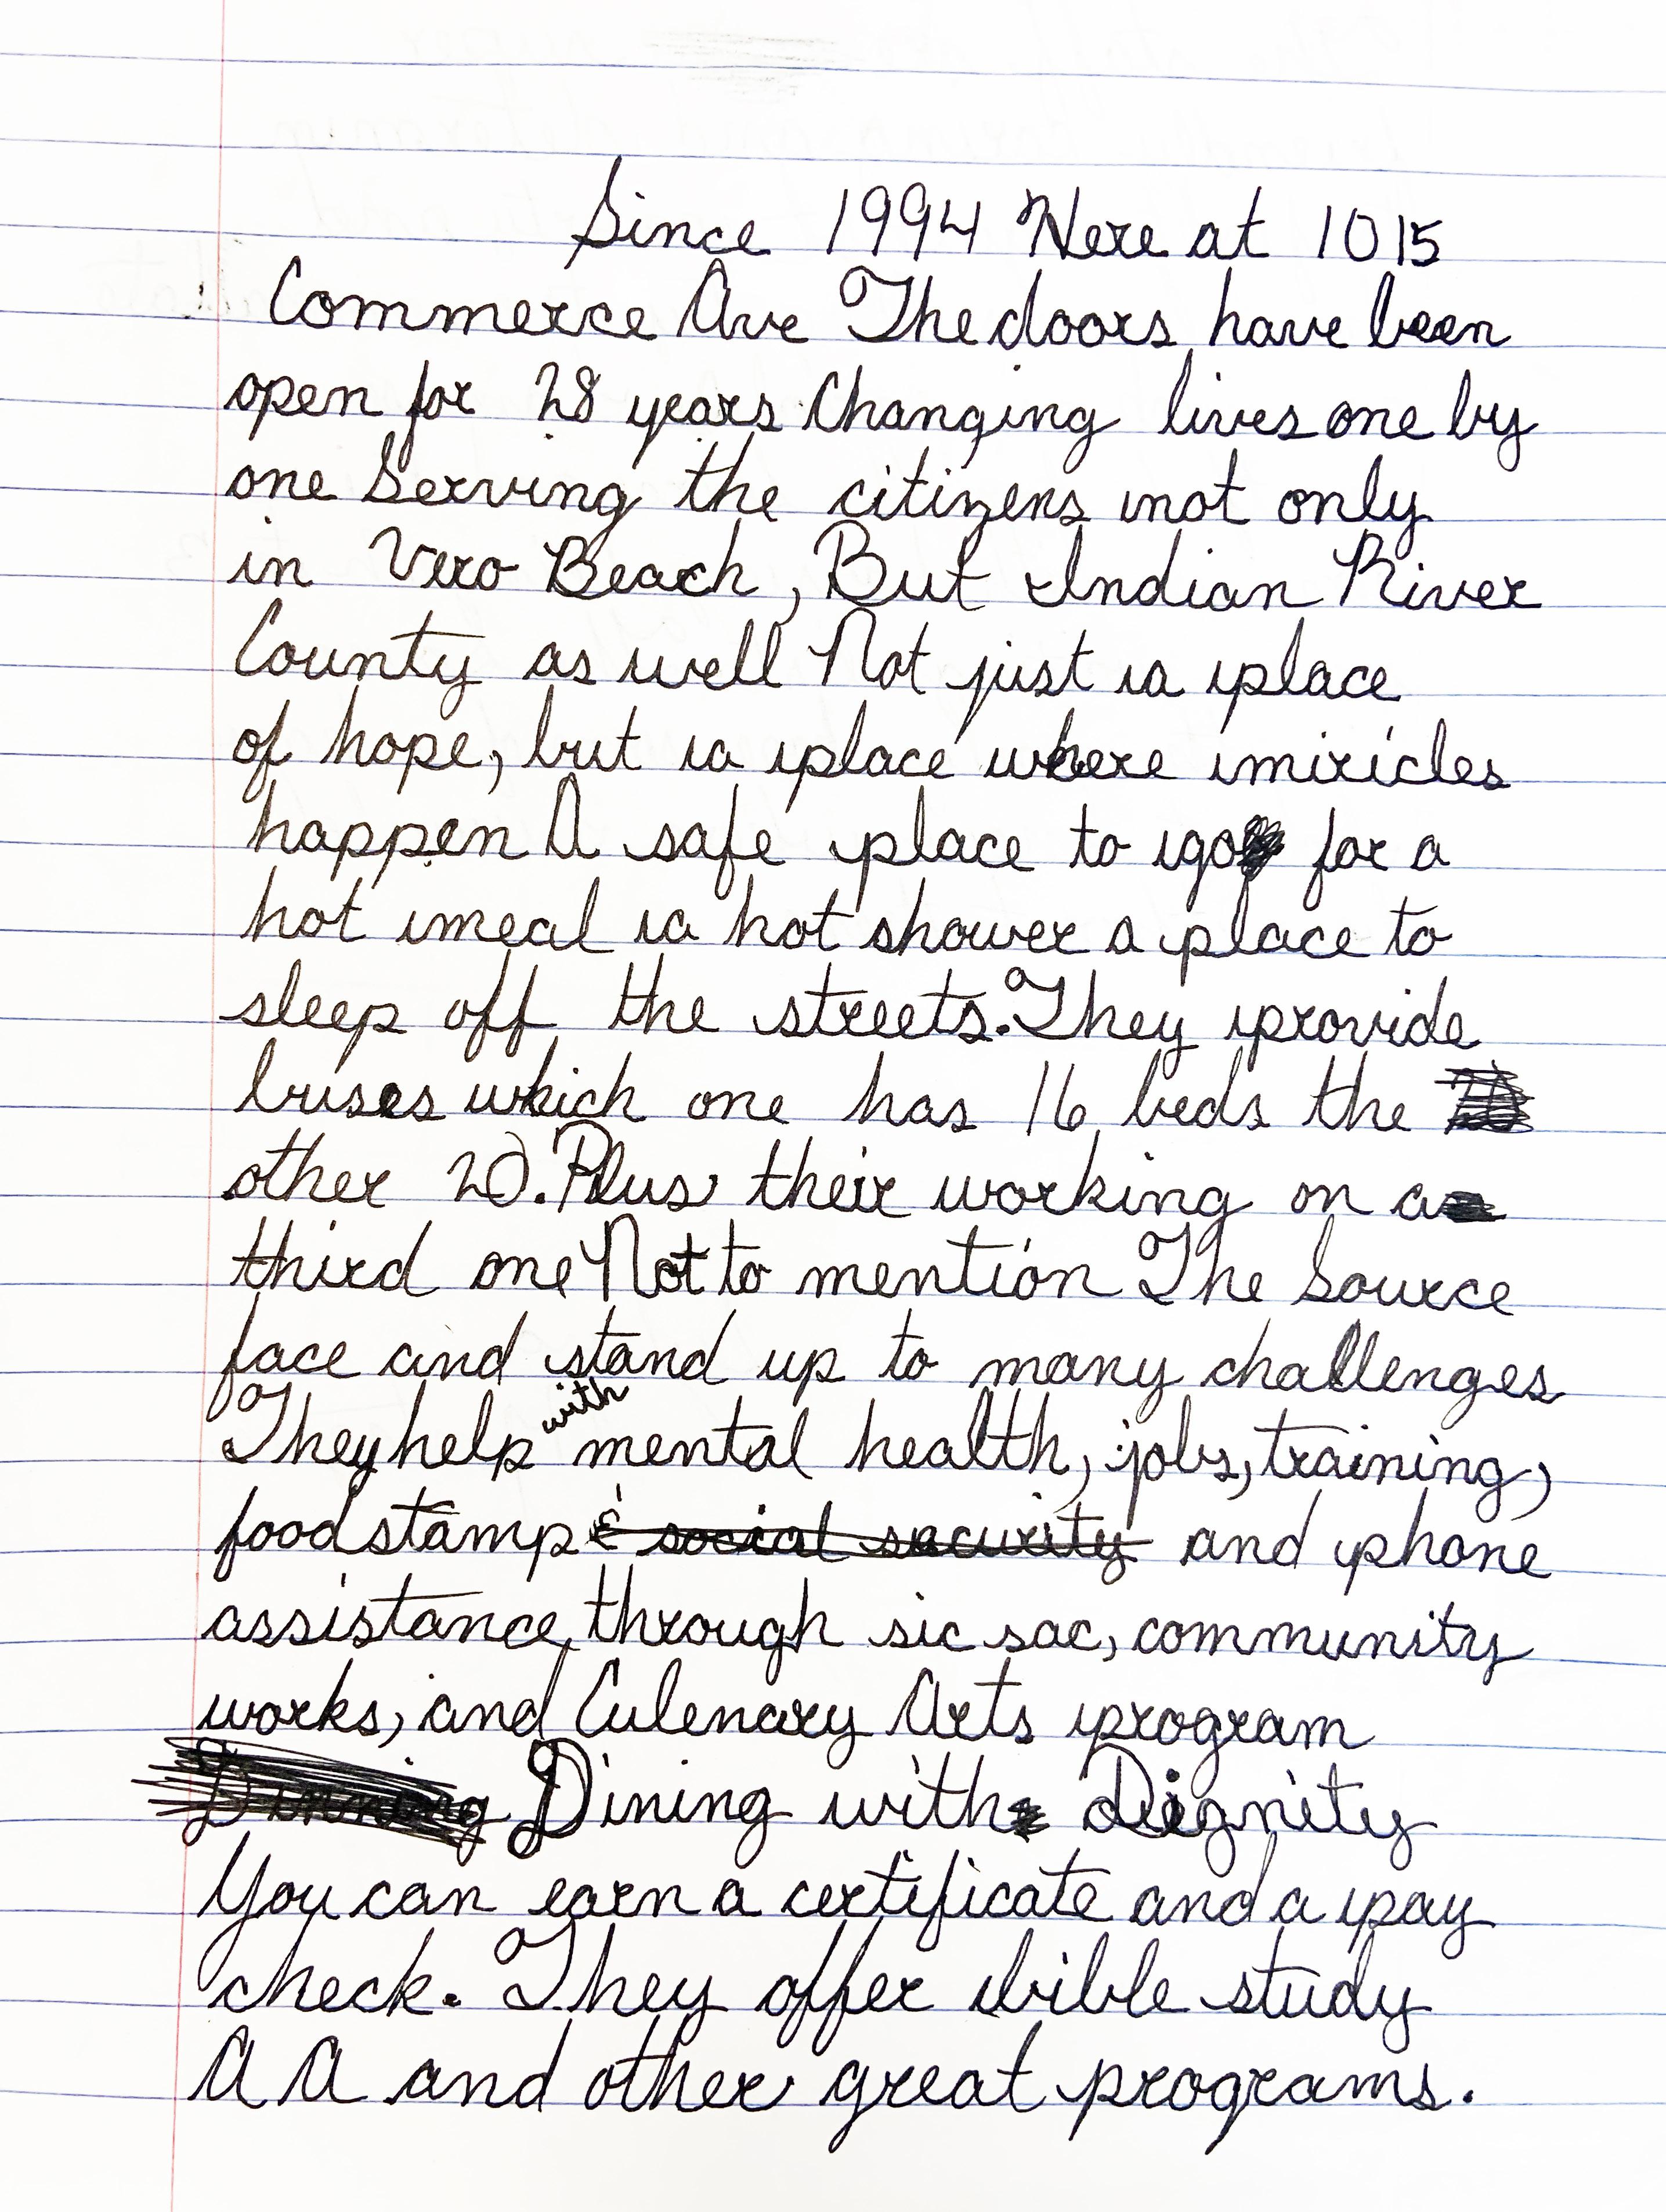 Since 1994 Here at 1015
Commerce Ave The doors have been
open for 28 years Changing lives one by
one Serving the citizens not only
in Vero Beach, But Indian River
County as well Not just a place
of hope, but a place where miricles
happen A safe place to go for a
hot meal a hot shower a place to
sleep off the streets. They provide
buses which one has 16 beds the
other 20. Plus their working on a
third one Not to mention The Source
face and stand up to many challenges
They help with mental health, jobs, training,
food stamp & social sacurity and phone
assistance through sic sac, community
works, and Culenary Arts program
Dinning Dining with Dignity
You can earn a certificate and a pay
check. They offer bible study
A A and other great programs.